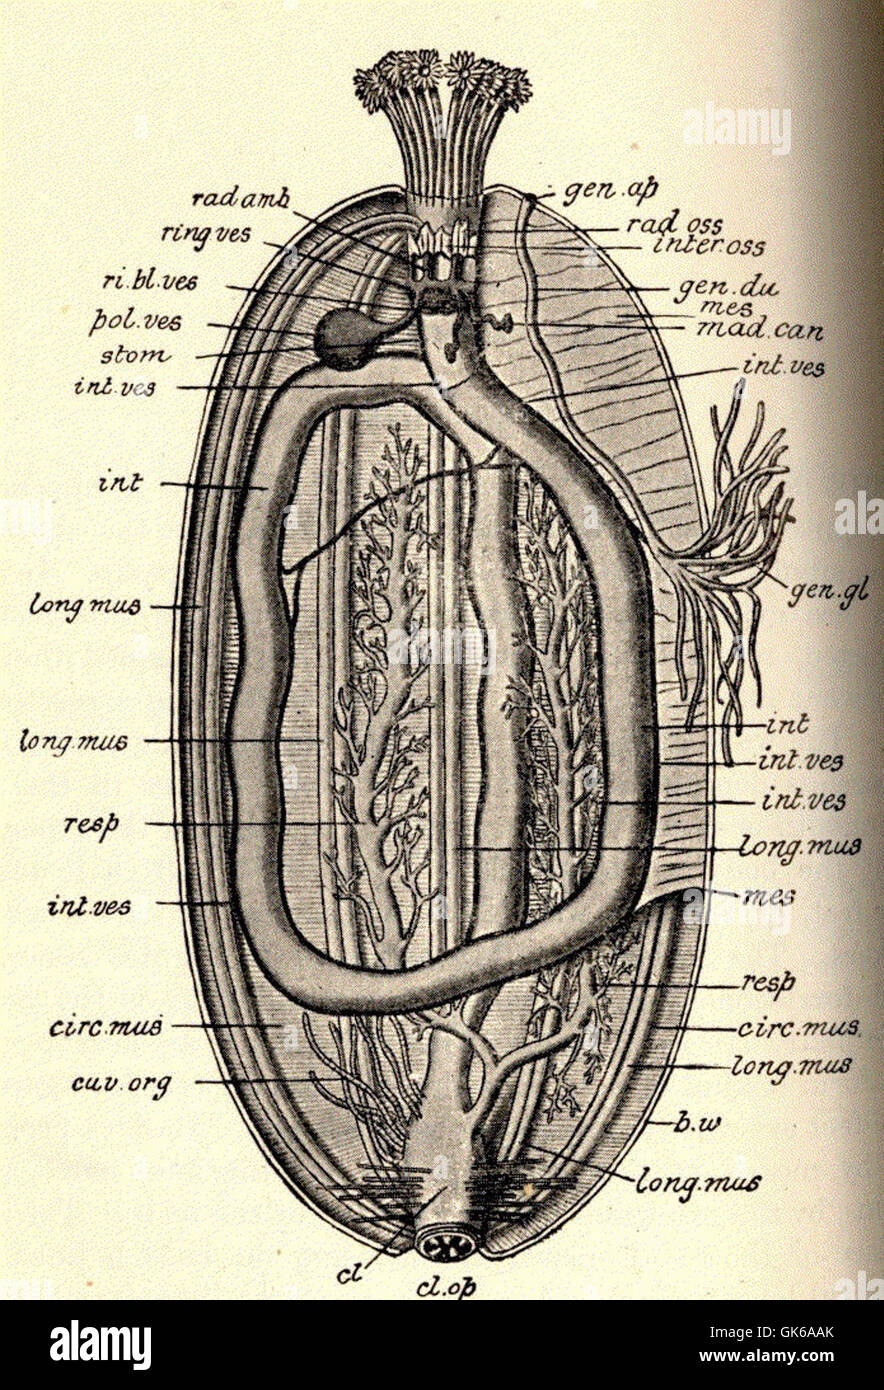 gen.ap
rad amb
rad oss
ring ves
inter.oss
ri.bl.ves
gen.du
mes
pol.ves
mad.can
stom
int.ves
int.ves
int
gen.gl
long mus
int
long.mus
int.ves
int.ves
resp
long.mus
mes
int.ves
resp
circ.mus
circ.mus.
long.mus
cuv.org
b.w
long.mus
cl
cl.op
alamy
alamy
alamy
alamy
alamy
a
a
a
alamy
Image ID: GK6AAK
www.alamy.com